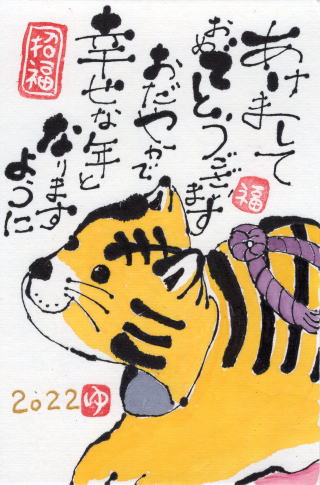 あけまして
おめでとうございます
おだやかで
幸せな年と
なります
ように
招福
福
2022
ゆ